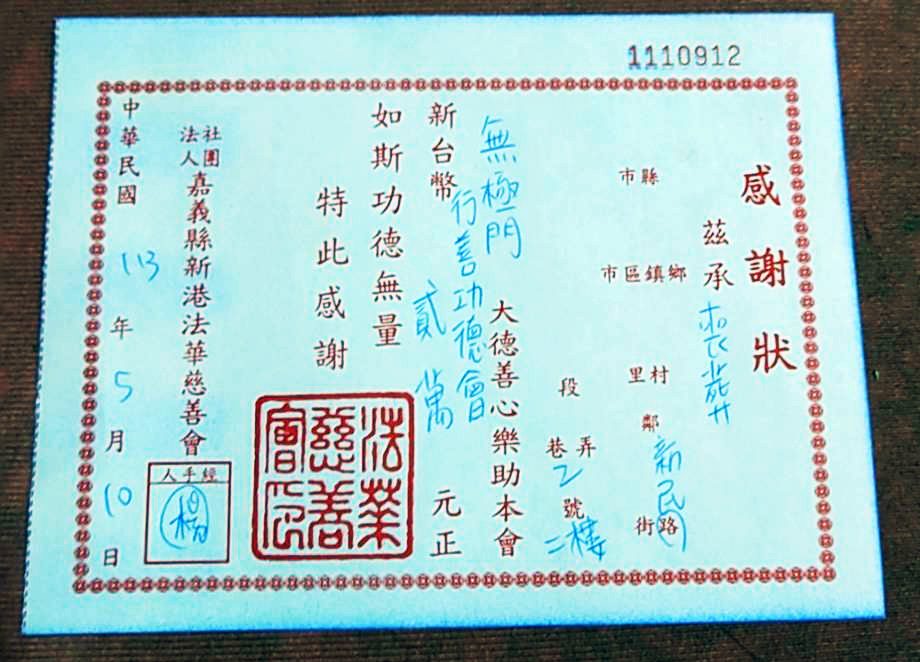 1110912
感謝狀
茲承 喪葬
縣市
鄉鎮區市
村里
鄰
新民路街
段
弄巷
乙號二樓
無極門
行善功德會
大德善心樂助本會
新台幣 貳萬 元正
如斯功德無量
特此感謝
法華慈善會印
社團法人嘉義縣新港法華慈善會
經手人
中華民國 113 年 5 月 10 日